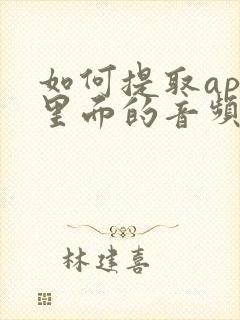 如何提取ap
里而的音频
林建喜